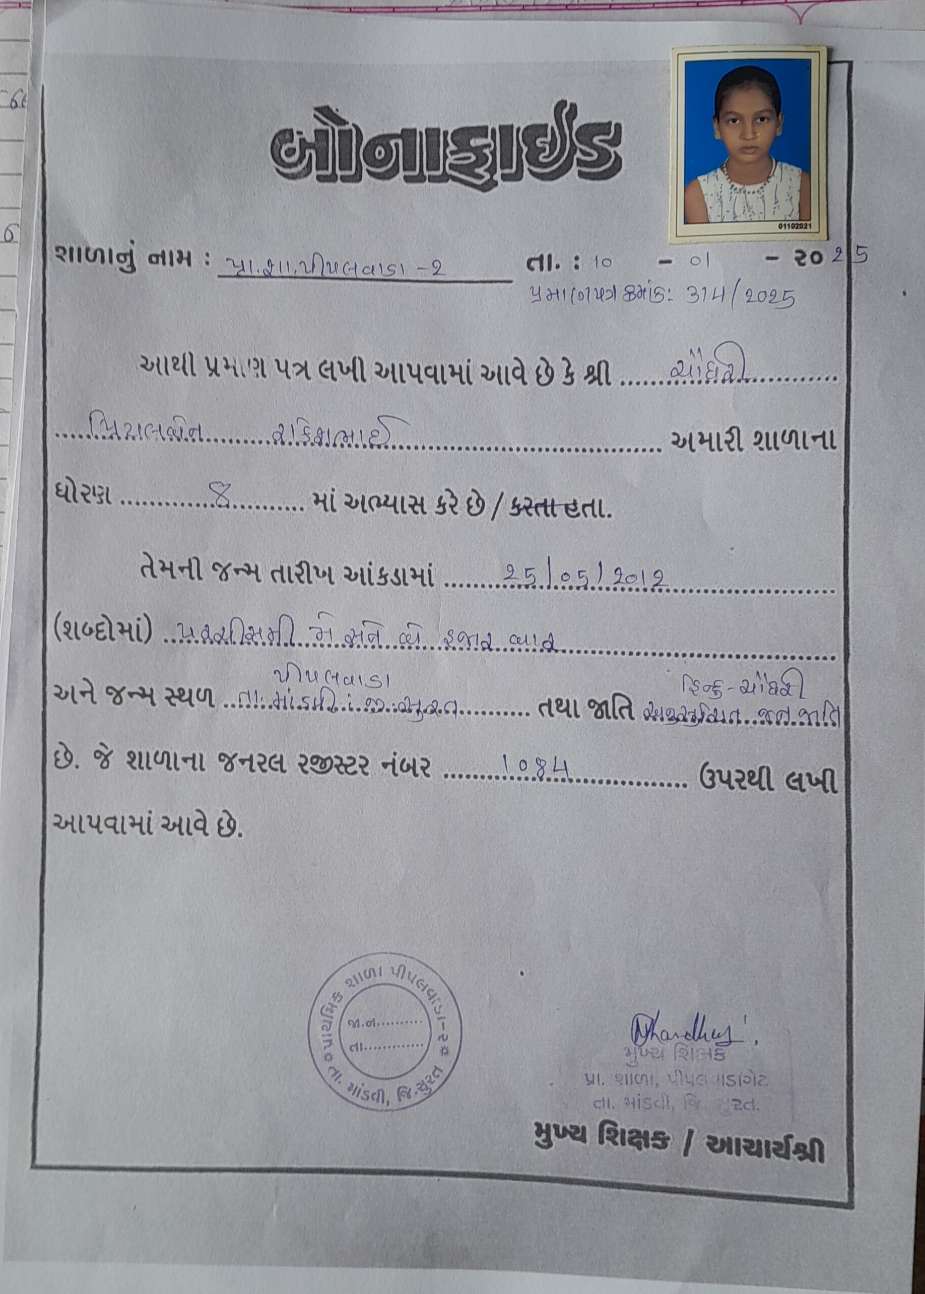 બોનાફાઈડ
01102021
શાળાનું નામ : પ્રા.શા.પીપલવાડા -૨
તા. : ૧૦ - ૦૧ - ૨૦૨5
પ્રમાણપત્ર ક્રમાંક: 314/2025
આથી પ્રમાણ પત્ર લખી આપવામાં આવે છે કે શ્રી ચૌધરી
રાકેશભાઈ અમારી શાળાના
ધોરણ 8 માં અભ્યાસ કરે છે / કરતા હતા.
તેમની જન્મ તારીખ આંકડામાં 25/05/2012
(શબ્દોમાં) પચ્ચીસમી મે સને બે હજાર બાર
પીપલવાડા
હિન્દુ-ચૌધરી
અને જન્મ સ્થળ તા.માંડવી.જી.સુરત તથા જાતિ અનુસુચિત જનજાતિ
છે. જે શાળાના જનરલ રજીસ્ટર નંબર 1084 ઉપરથી લખી
આપવામાં આવે છે.
પ્રાથમિક શાળા પીપલવાડા-૨
જા.નં.
તા.
તા. માંડવી, જિ.સુરત
મુખ્ય શિક્ષક
પ્રા. શાળા, પીપલવાડાગેટ
તા. માંડવી, જિ. સુરત.
મુખ્ય શિક્ષક / આચાર્યશ્રી